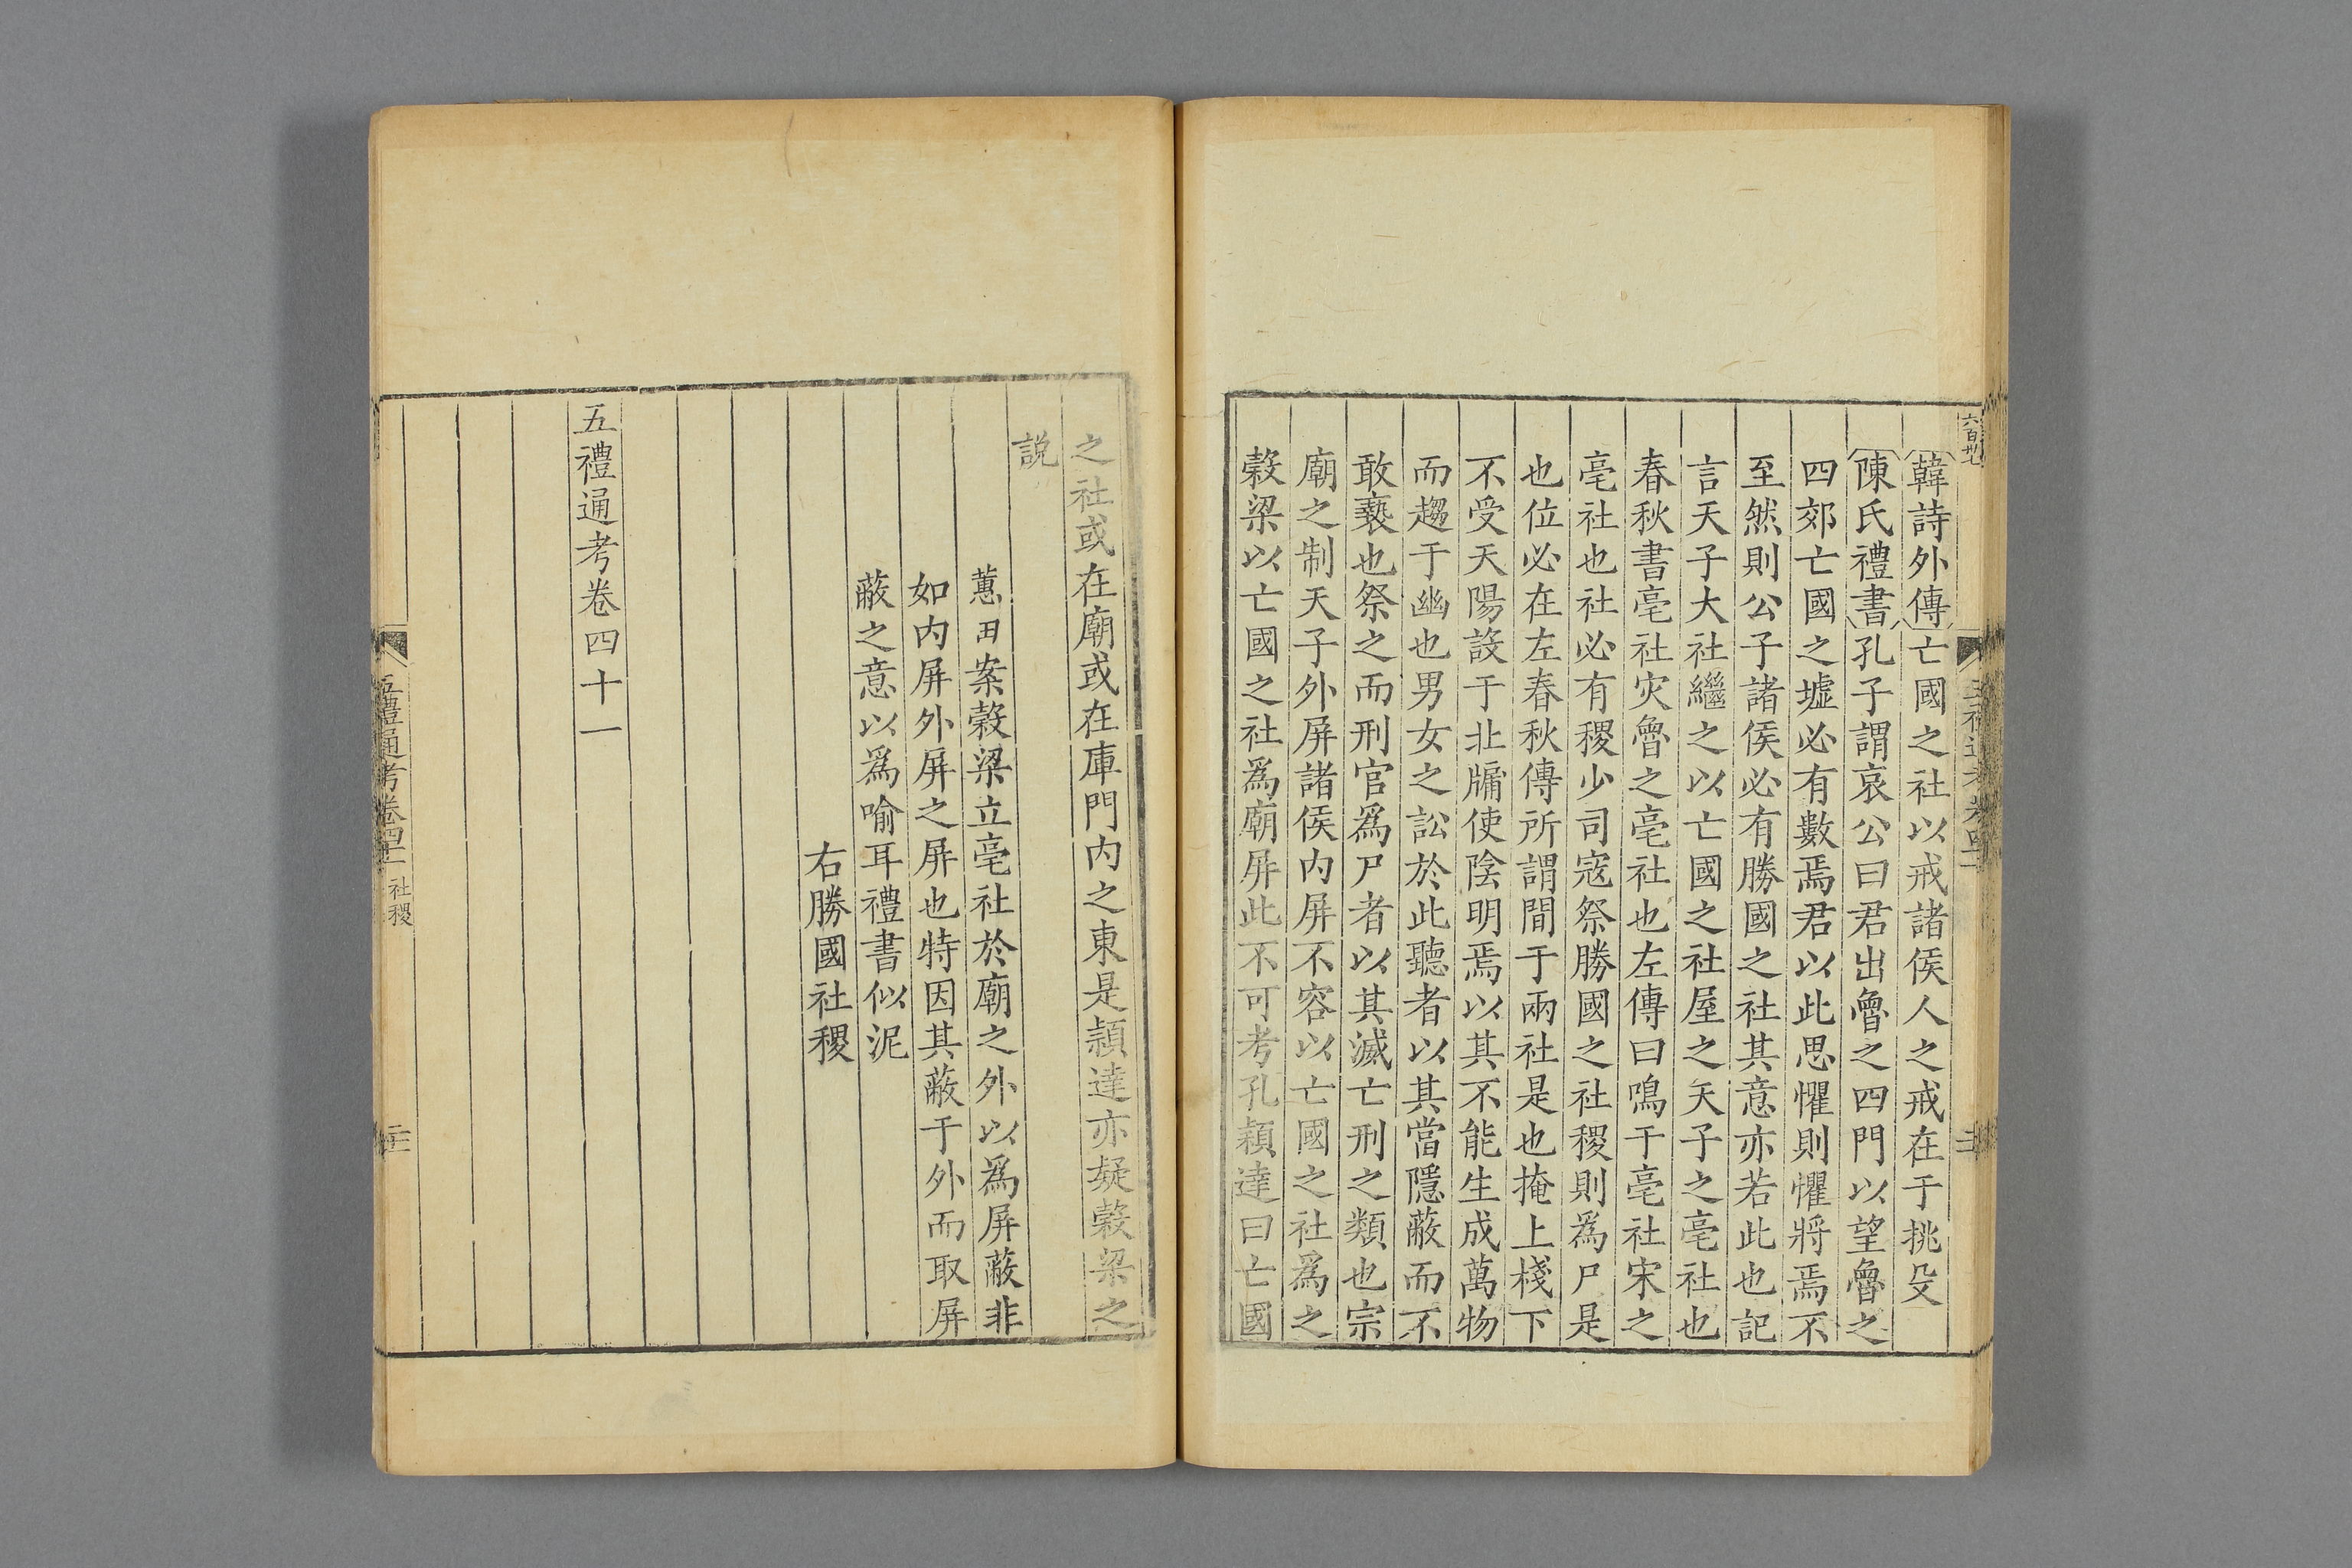 韓詩外傳亡國之社以戒諸侯人之戒在于挑殳
陳氏禮書孔子謂哀公曰君出魯之四門以望魯之
四郊亡國之墟必有數焉君以此思懼則懼將焉不
至然則公子諸侯必有勝國之社其意亦若此也記
言天子大社繼之以亡國之社屋之天子之亳社也
春秋書亳社灾魯之亳社也左傳曰鳴于亳社宋之
亳社也社必有稷少司寇祭勝國之社稷則爲尸是
也位必在左春秋傳所謂間于兩社是也掩上棧下
不受天陽設于北牖使陰明焉以其不能生成萬物
而趨于幽也男女之訟於此聽者以其當隱蔽而不
敢䙝也祭之而刑官爲尸者以其滅亡刑之類也宗
廟之制天子外屏諸侯内屏不容以亡國之社爲之
榖梁以亡國之社爲廟屏此不可考孔穎達曰亡國
之社或在廟或在庫門内之東是穎達亦疑榖梁之
説
蕙田案榖梁立亳社於廟之外以爲屏蔽非
如内屏外屏之屏也特因其蔽于外而取屏
蔽之意以爲喻耳禮書似泥
右勝國社稷
五禮通考卷四十一
五禮通考卷四十一 社稷